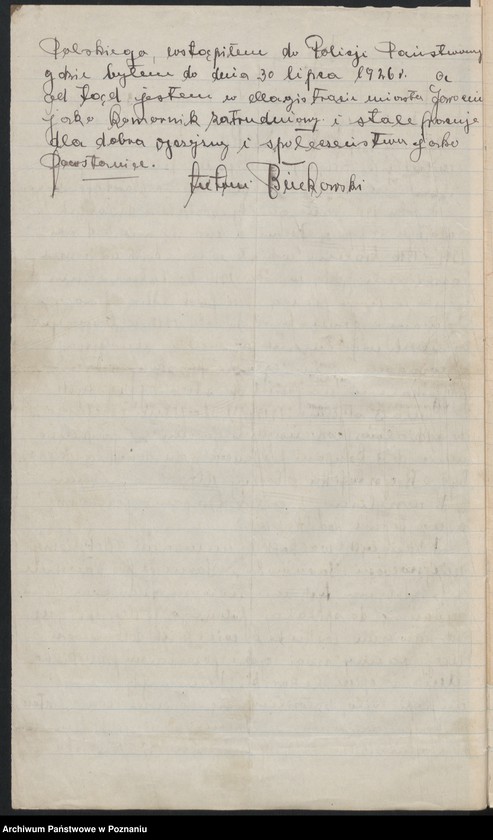 Polskiego, wstąpiłem do Policji Państwowej
gdzie byłem do dnia 30 lipca 1926 r. a
od tąd jestem w Magistracie miasta Jarocin
jako komornik zatrudniony i stale pracuje
dla dobra ojczyzny i społeczeństwa jako
Powstaniec.
Antoni Binkowski
Archiwum Państwowe w Poznaniu